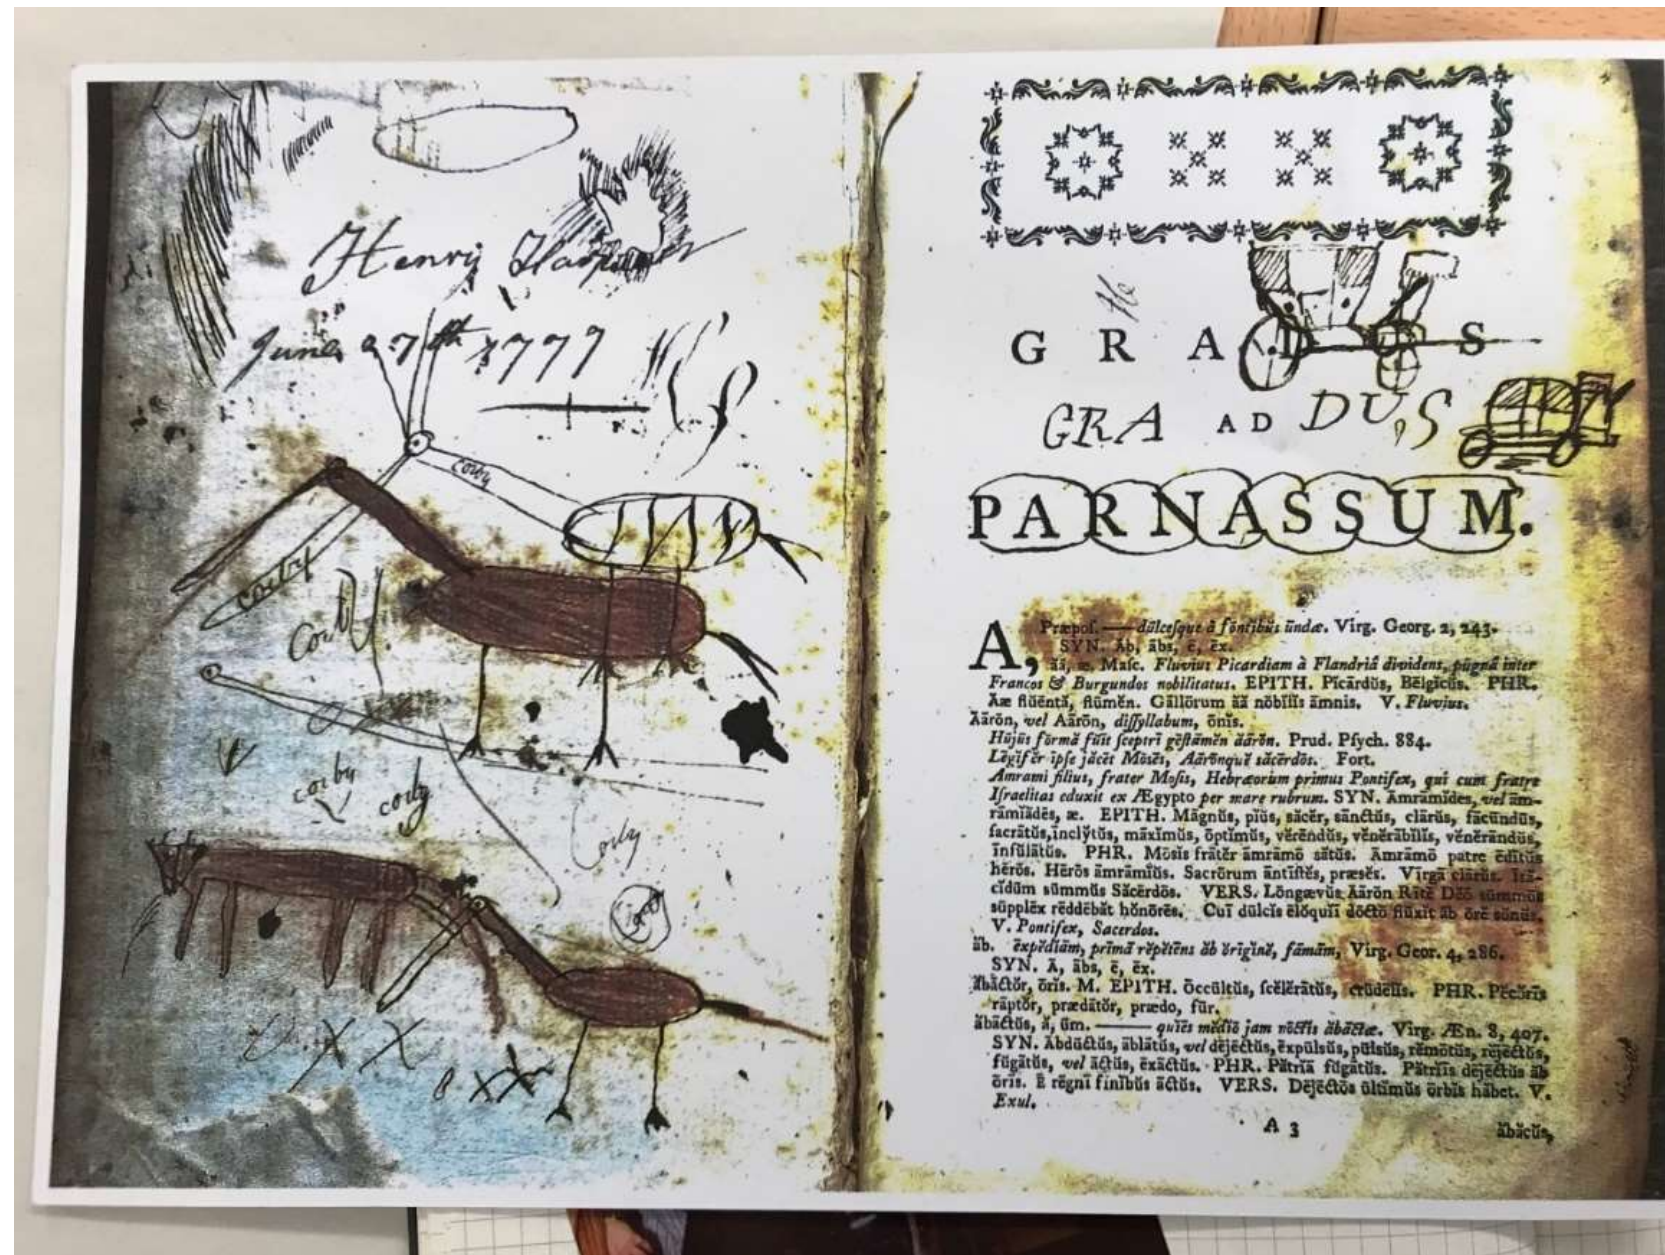 Henry
June 27th 1777
corby
corby
corby
corby
Corby
G R A D U S
GRA AD DUS
PARNASSUM.
A, Præpoſ. —— dūlceſque ā fōntĭbŭs ūndæ. Virg. Georg. 2, 243.
SYN. Āb, ābs, ē, ēx.
āā, æ. Maſc. Fluvius Picardiam à Flandriâ dividens, pugnâ inter
Francos & Burgundos nobilitatus. EPITH. Pīcārdŭs, Bēlgĭcŭs. PHR.
Āæ flŭēntă, flūmĕn. Gāllōrum āā nōbĭlĭs āmnis. V. Fluvius.
Āărōn, vel Aārōn, diſſyllabum, ōnĭs.
Hūjŭs fōrmă fŭĭt ſcēptrī gēſtāmĕn ăărōn. Prud. Pſych. 884.
Lēgĭfĕr īpſe jăcēt Mōsēs, Aārōnquĕ săcērdōs. Fort.
Amrami filius, frater Moſis, Hebræorum primus Pontifex, qui cum fratre
Iſraelitas eduxit ex Ægypto per mare rubrum. SYN. Āmrāmīdes, vel ām-
rāmĭădēs, æ. EPITH. Māgnŭs, pĭŭs, săcĕr, sānctŭs, clārŭs, fācūndŭs,
ſacrātŭs, īnclўtŭs, māxĭmŭs, ōptĭmŭs, vĕrēndŭs, vĕnĕrābĭlĭs, vĕnĕrāndŭs,
īnfŭlātŭs. PHR. Mōsis frātĕr āmrāmō sătŭs. Āmrāmō patre ēdĭtŭs
hērōs. Hērōs āmrāmĭŭs. Sacrōrum āntīſtĕs, præsĕs. Vīrgā clārŭs. Iſă-
cĭdūm sūmmŭs Săcērdōs. VERS. Lōngævŭs Aārōn Rītĕ Dĕō sūmmōs
sūpplēx rēddēbăt hŏnōrēs. Cuī dūlcĭs ēlŏquĭī dōctō flūxĭt ăb ōrĕ sŏnŭs.
V. Pontifex, Sacerdos.
ăb. ēxpĕdĭăm, prīmā rĕpĕtēns ăb ŏrīgĭnĕ, fāmăm, Virg. Geor. 4, 286.
SYN. Ā, ābs, ē, ēx.
ăbāctŏr, ōris. M. EPITH. Ōccūltŭs, ſcĕlĕrātŭs, crūdēlĭs. PHR. Pĕcŏrĭs
rāptŏr, prædātŏr, prædo, fūr.
ăbāctŭs, ă, ŭm. —— quĭēs mĕdĭō jam nōctĭs ăbāctæ. Virg. Æn. 8, 407.
SYN. Abdūctŭs, āblātŭs, vel dējēctŭs, ēxpūlsŭs, pūlsŭs, rĕmōtŭs, rējēctŭs,
fŭgātŭs, vel āctŭs, ēxāctŭs. PHR. Pătrĭā fŭgātŭs. Pătrĭĭs dējēctŭs ăb
ōrĭs. Ē rēgnī fīnĭbŭs āctŭs. VERS. Dējēctōs ūltĭmŭs ōrbĭs hăbet. V.
Exul.
A 3
ăbăcŭs,